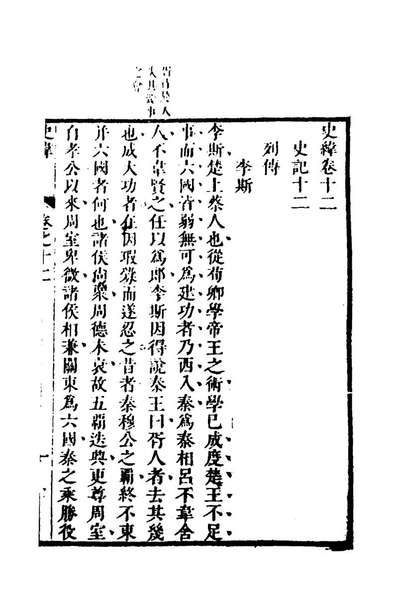 史緯卷十二
史記十二
列傳
李斯
李斯楚上蔡人也從荀卿學帝王之術學已成度楚王不足
事而六國皆弱無可爲建功者乃西入秦爲秦相呂不韋舍
人不韋賢之任以爲郎李斯因得說秦王曰胥人者去其幾
也成大功者在因瑕釁而遂忍之昔者秦穆公之霸終不東
幷六國者何也諸侯尚衆周德未衰故五霸迭興更尊周室
自孝公以來周室卑微諸侯相兼關東爲六國秦之乘勝役
史緯
卷之十二
一